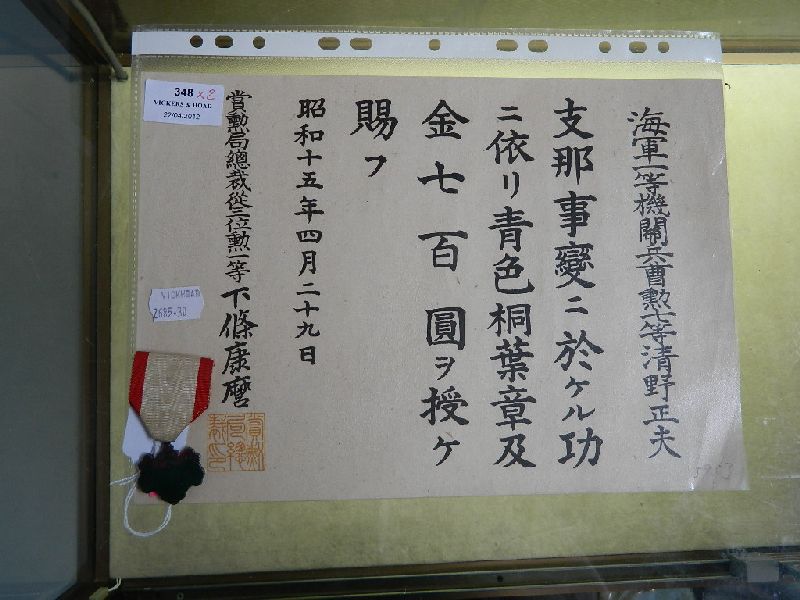 海軍一等機關兵曹勲七等清野正夫
支那事變ニ於ケル功
ニ依リ青色桐葉章及
金七百圓ヲ授ケ
賜フ
昭和十五年四月二十九日
賞勲局總裁從三位勲一等下條康麿
348 x2
VICKERS & HOAD
22/04/2012
VICKHOAD
2685-30